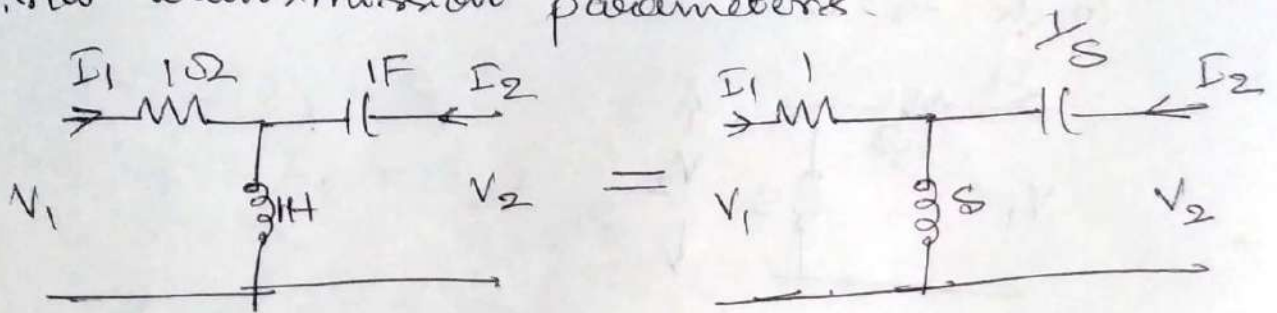 transmission parameters.
I1 1Ω 1F I2 I1 1 1/s I2
V1 1H V2 = V1 s V2